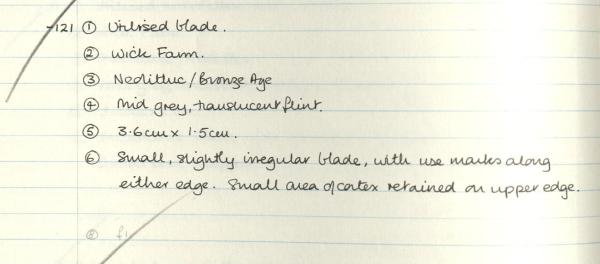 121 ① Utilised blade.
② Wick Farm.
③ Neolithic/Bronze Age
④ Mid grey, translucent flint.
⑤ 3.6cm x 1.5cm.
⑥ Small, slightly irregular blade, with use marks along
either edge. Small area of cortex retained on upper edge.